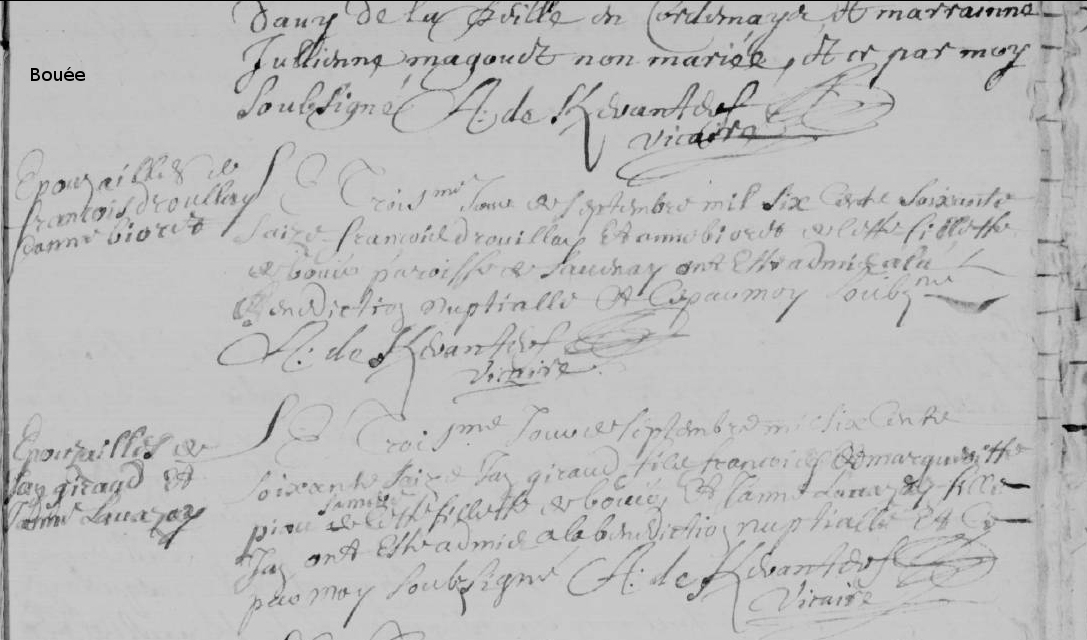 Bouée
davy de la en Cordemaye Et marrainne
Jullienne magoudt non mariée, Et ce par moy
Soubsigné A: de Kevantdef
Vicaire
Epouzailles de
francois drouillay
Janne bioret
Le Troisme Jour de septembre mil six Cents Soixante
saize francois drouillay Et anne bioret de cette fillette
de bouée paroisse de Savenay ont Esté admis a la
Benediction Nuptialle Et Ce par moy Soubzne
A: de Kevantdef
Vicaire
Epouzailles de
Jan giraud Et
Janne Lauazay
Le Troisme Jour de septembre mil six Cents
soixante saize Jan giraud filz francois Et margueritte
piau de cette fillette de bouée Et Janne Lauazay fille
Jan ont Esté admis a la benediction nuptialle Et Ce
par moy Soubzsigné A: de Kevantdef
Vicaire